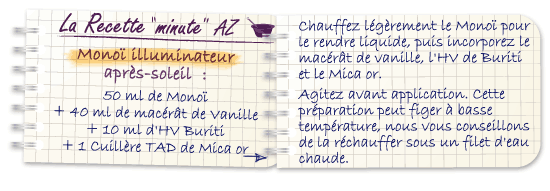 La Recette "minute" AZ
Monoï illuminateur
après-soleil :
50 ml de Monoï
+ 40 ml de macérât de Vanille
+ 10 ml d'HV Buriti
+ 1 Cuillère TAD de Mica or
Chauffez légèrement le Monoï pour
le rendre liquide, puis incorporez le
macérât de vanille, l'HV de Buriti
et le Mica or.
Agitez avant application. Cette
préparation peut figer à basse
température, nous vous conseillons
de la réchauffer sous un filet d'eau
chaude.